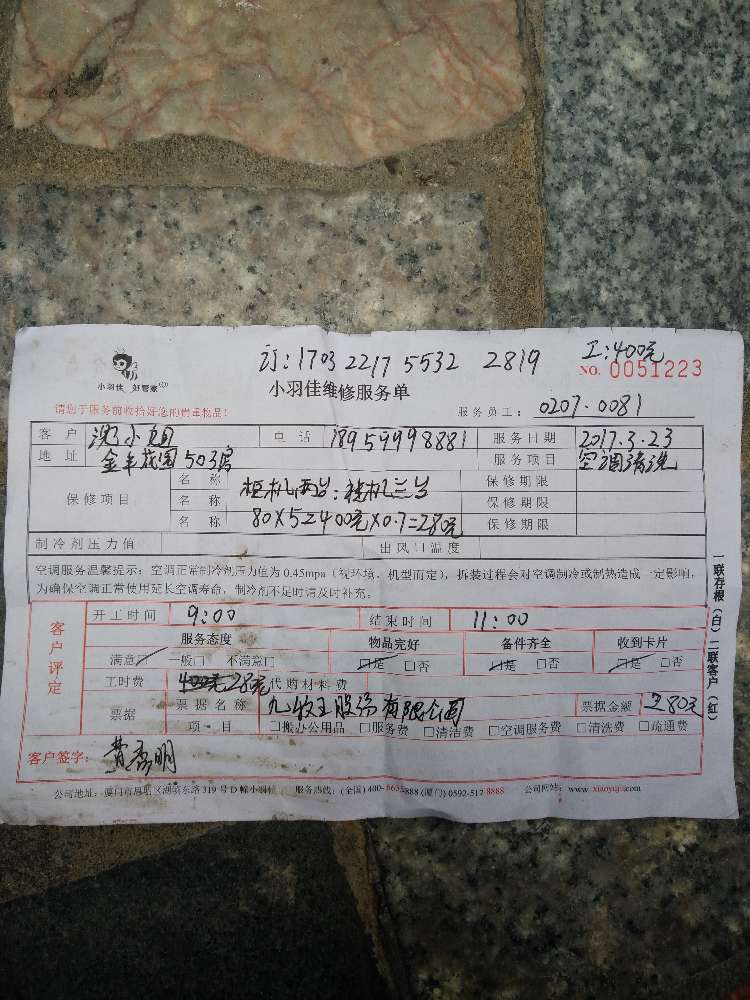 订:1703 2217 5532 2819 工:400元
小羽佳 好管家
小羽佳维修服务单 NO. 0051223
请您于服务前收拾好您的贵重物品! 服务员工: 0207.0081
客户 小姐 电话 18959998881 服务日期 2017.3.23
地址 金羊花园503房 服务项目 空调清洗
保修项目 名称 柜机两台:挂机三台 保修期限
名称 保修期限
名称 80X5=400元X0.7=280元 保修期限
制冷剂压力值 出风口温度
空调服务温馨提示:空调正常制冷剂压力值为0.45mpa(视环境、机型而定),拆装过程会对空调制冷或制热造成一定影响,
为确保空调正常使用延长空调寿命,制冷剂不足时请及时补充。
客户评定 开工时间 9:00 结束时间 11:00
服务态度 物品完好 备件齐全 收到卡片
满意☑ 一般□ 不满意□ ☑是 □否 ☑是 □否 ☑是 □否
工时费 400元 280元 代购材料费
票据 票据名称 九牧王股份有限公司 票据金额 280元
项目 □搬办公用品 □服务费 □清洁费 □空调服务费 □清洗费 □疏通费
客户签字: 黄秀明
公司地址:厦门市思明区湖滨东路319号D幢小羽佳 服务热线:(全国)400-6655888 (厦门)0592-5178888 公司网站:www.xiaoyujia.com
一联存根(白)二联客户(红)